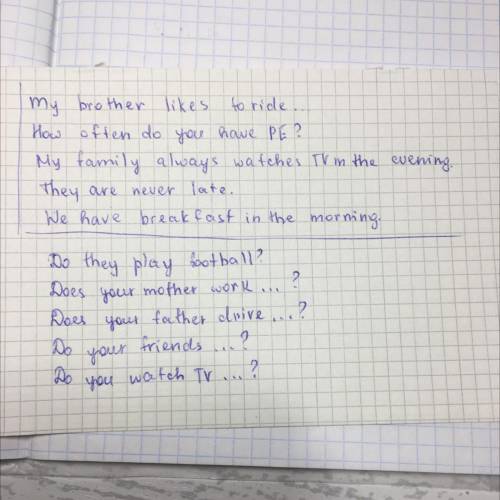 My brother likes to ride...
How often do you have PE?
My family always watches TV in the evening.
They are never late.
We have breakfast in the morning.
Do they play football?
Does your mother work ... ?
Does your father drive ...?
Do your friends ...?
Do you watch TV ...?